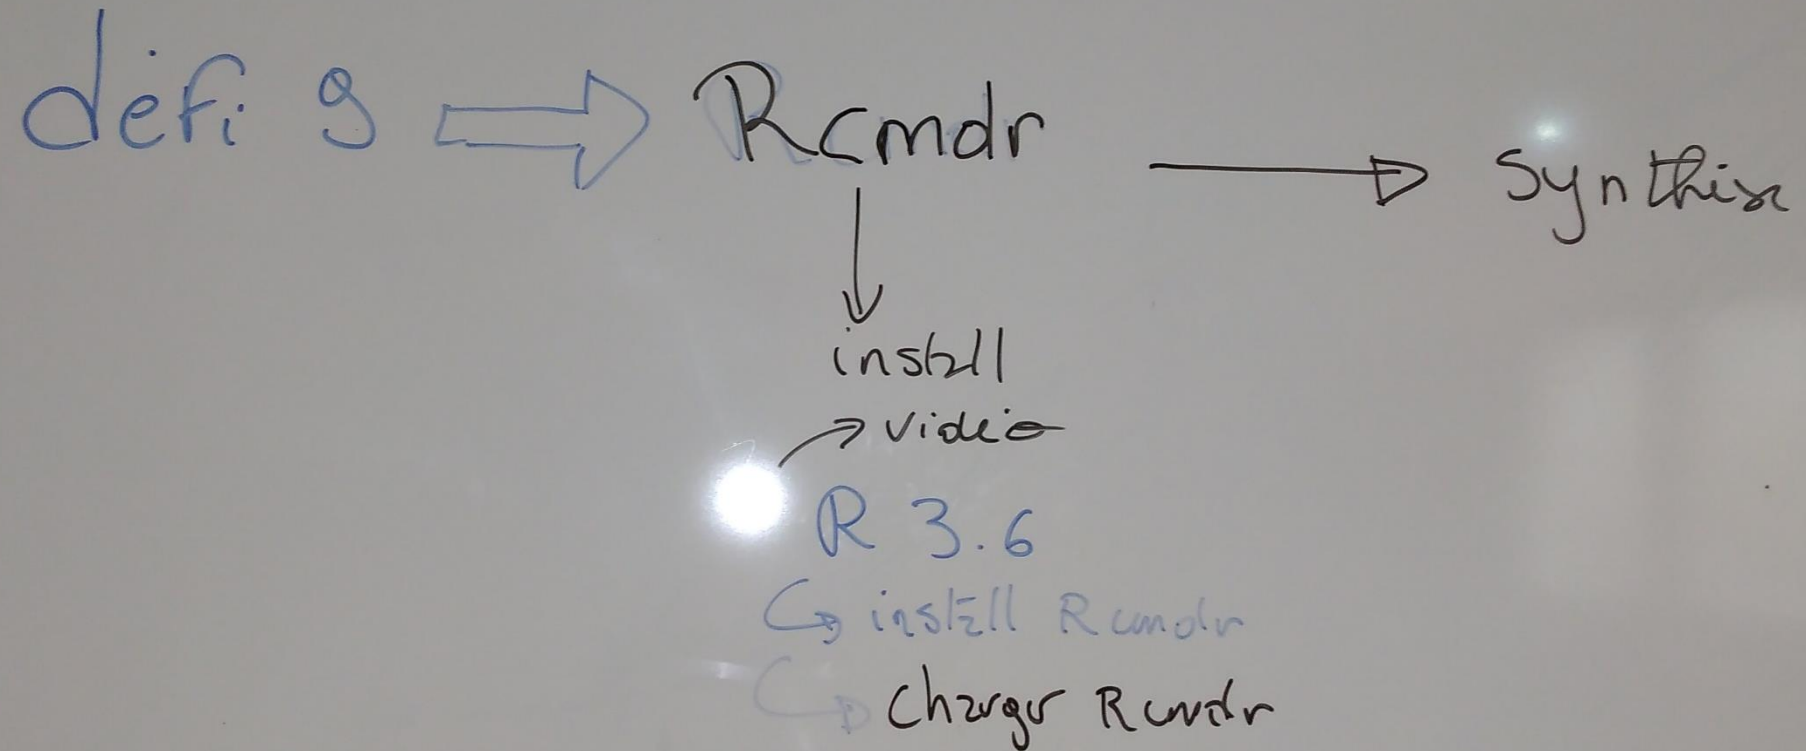 défi 9 ⇒ Rcmdr → Synthèse
↓
install
→ vidéo
R 3.6
↳ install Rcmdr
↳ Charger Rcmdr